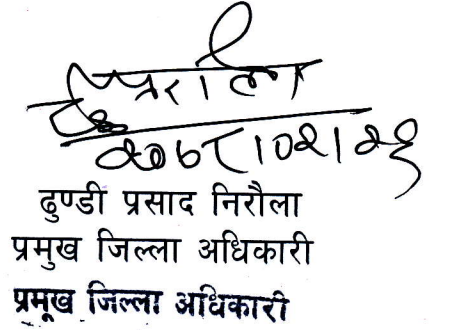 २०७८।०२।२१
ढुण्डी प्रसाद निरौला
प्रमुख जिल्ला अधिकारी
प्रमूख जिल्ला अधिकारी